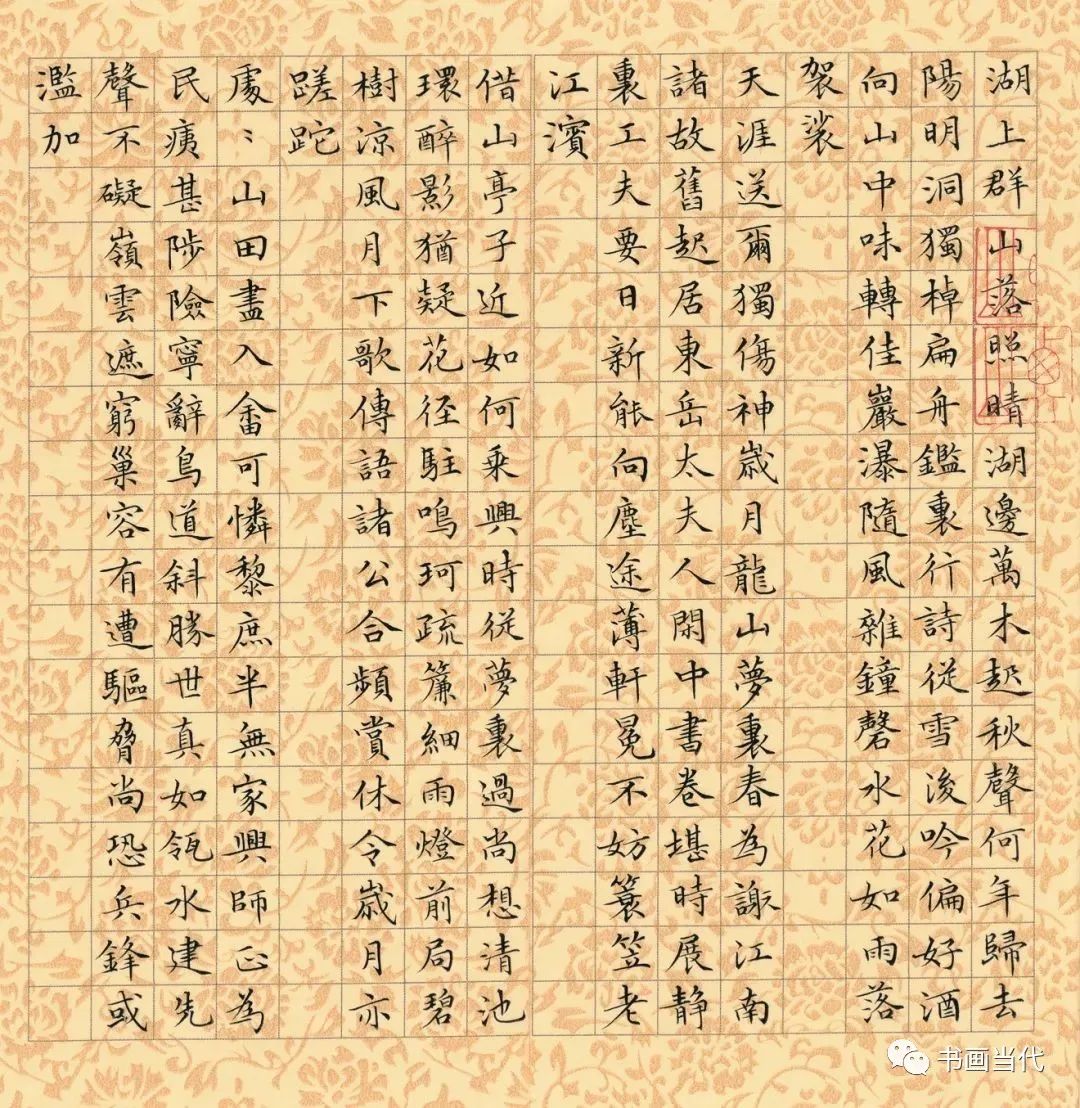 湖上群山落照晴湖邊萬木起秋聲何年歸去
陽明洞獨棹扁舟鑑裏行詩從雪後吟偏好酒
向山中味轉佳巖瀑隨風雜鐘磬水花如雨落
袈裟
天涯送爾獨傷神歲月龍山夢裏春為謝江南
諸故舊起居東岳太夫人閑中書卷堪時展靜
裏工夫要日新能向塵途薄軒冕不妨簑笠老
江濱
借山亭子近如何乘興時從夢裏過尚想清池
環醉影猶疑花徑駐鳴珂疏簾細雨燈前局碧
樹涼風月下歌傳語諸公合頻賞休令歲月亦
蹉跎
處〻山田盡入畬可憐黎庶半無家興師正為
民痍甚陟險寧辭鳥道斜勝世真如瓴水建先
聲不礙嶺雲遮窮巢容有遭驅脅尚恐兵鋒或
濫加
书画当代